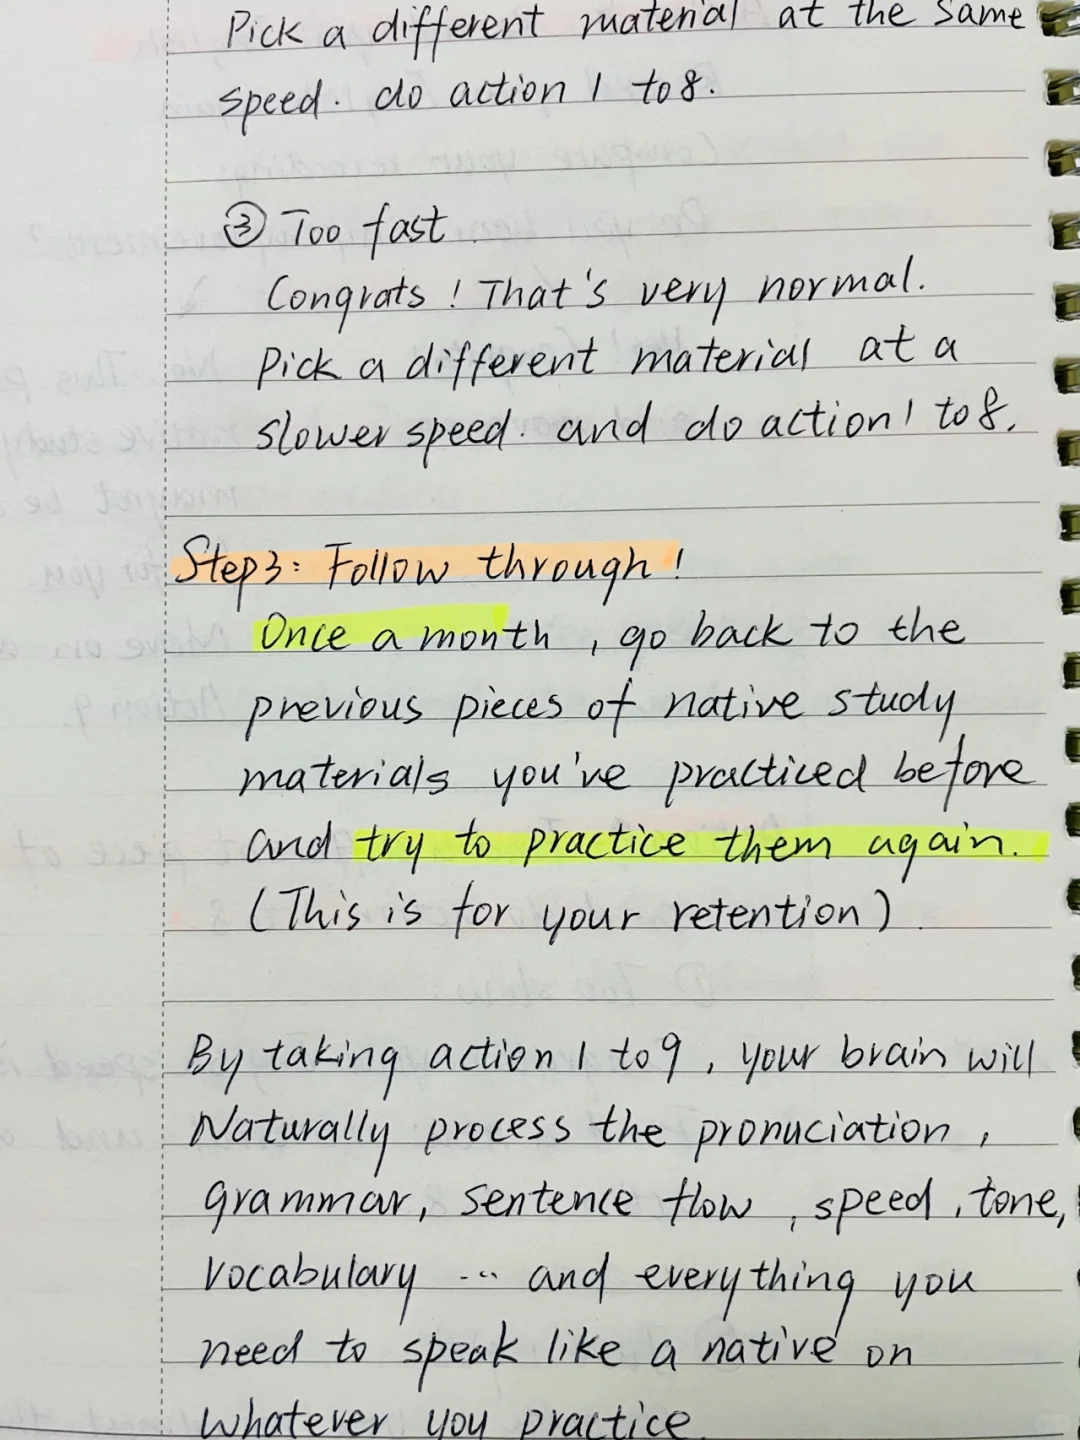 Pick a different material at the same
speed. do action 1 to 8.
③ Too fast
Congrats! That's very normal.
Pick a different material at a
slower speed. and do action 1 to 8.
Step3: Follow through!
Once a month, go back to the
previous pieces of native study
materials you've practiced before
and try to practice them again.
(This is for your retention).
By taking action 1 to 9, your brain will
Naturally process the pronuciation,
grammar, sentence flow, speed, tone,
vocabulary ... and everything you
need to speak like a native on
whatever you practice.